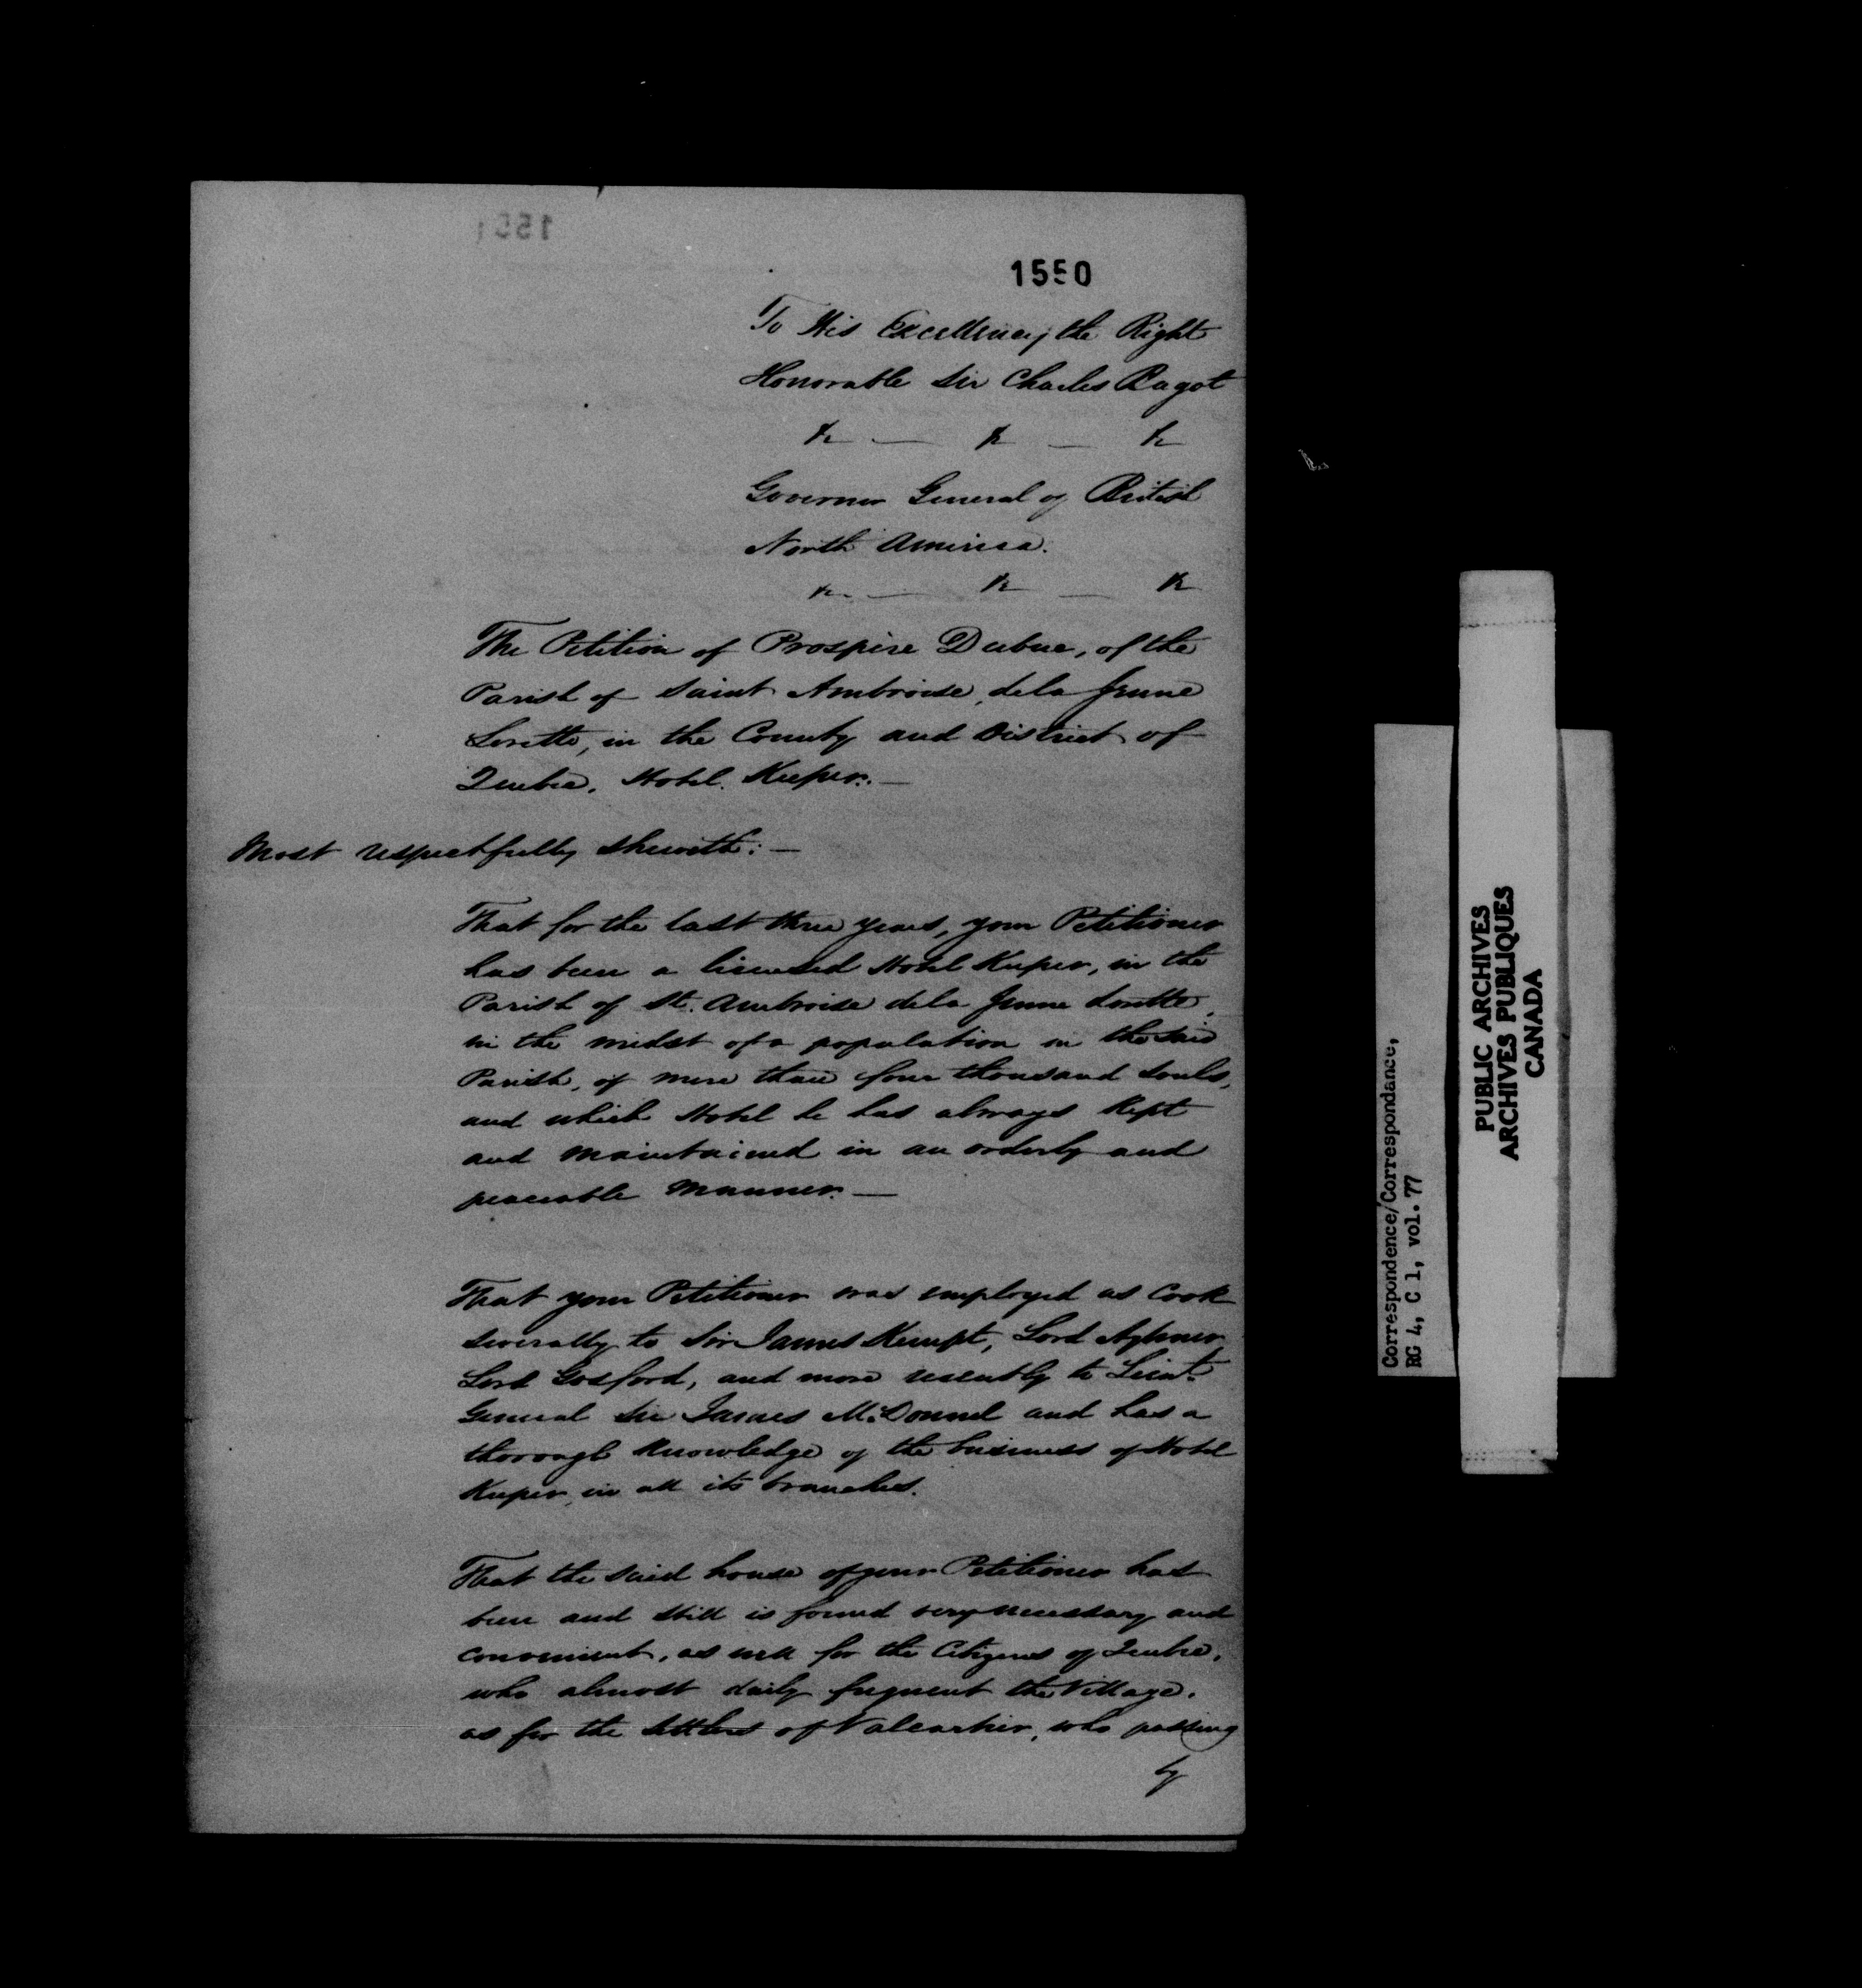 1550
To His Excellency the Right
Honorable Sir Charles Bagot
&c — &c — &c
Governor General of British
North America.
&c — &c — &c
The Petition of Prospère Dubuc, of the
Parish of Saint Ambroise, dela Jeune
Lorette, in the County and District of
Quebec, Hotel Keeper. —
Most respectfully sheweth: —
That for the last three years, your Petitioner
has been a licensed Hotel Keeper, in the
Parish of St. Ambroise dela Jeune Lorette,
in the midst of a population in the said
Parish, of more than four thousand souls,
and which Hotel he has always kept
and maintained in an orderly and
peaceable manner. —
That your Petitioner was employed as Cook
severally to Sir James Kempt, Lord Aylmer
Lord Gosford, and more recently to Lieut.
General Sir James McDonnel and has a
thorough knowledge of the business of Hotel
Keeper, in all its branches.
That the said house of your Petitioner has
been and still is found very necessary and
convenient, as well for the Citizens of Quebec,
who almost daily frequent the Village,
as for the settlers of Valcartier, who passing
by
Correspondence/Correspondance,
RG 4, C 1, vol. 77
PUBLIC ARCHIVES
ARCHIVES PUBLIQUES
CANADA